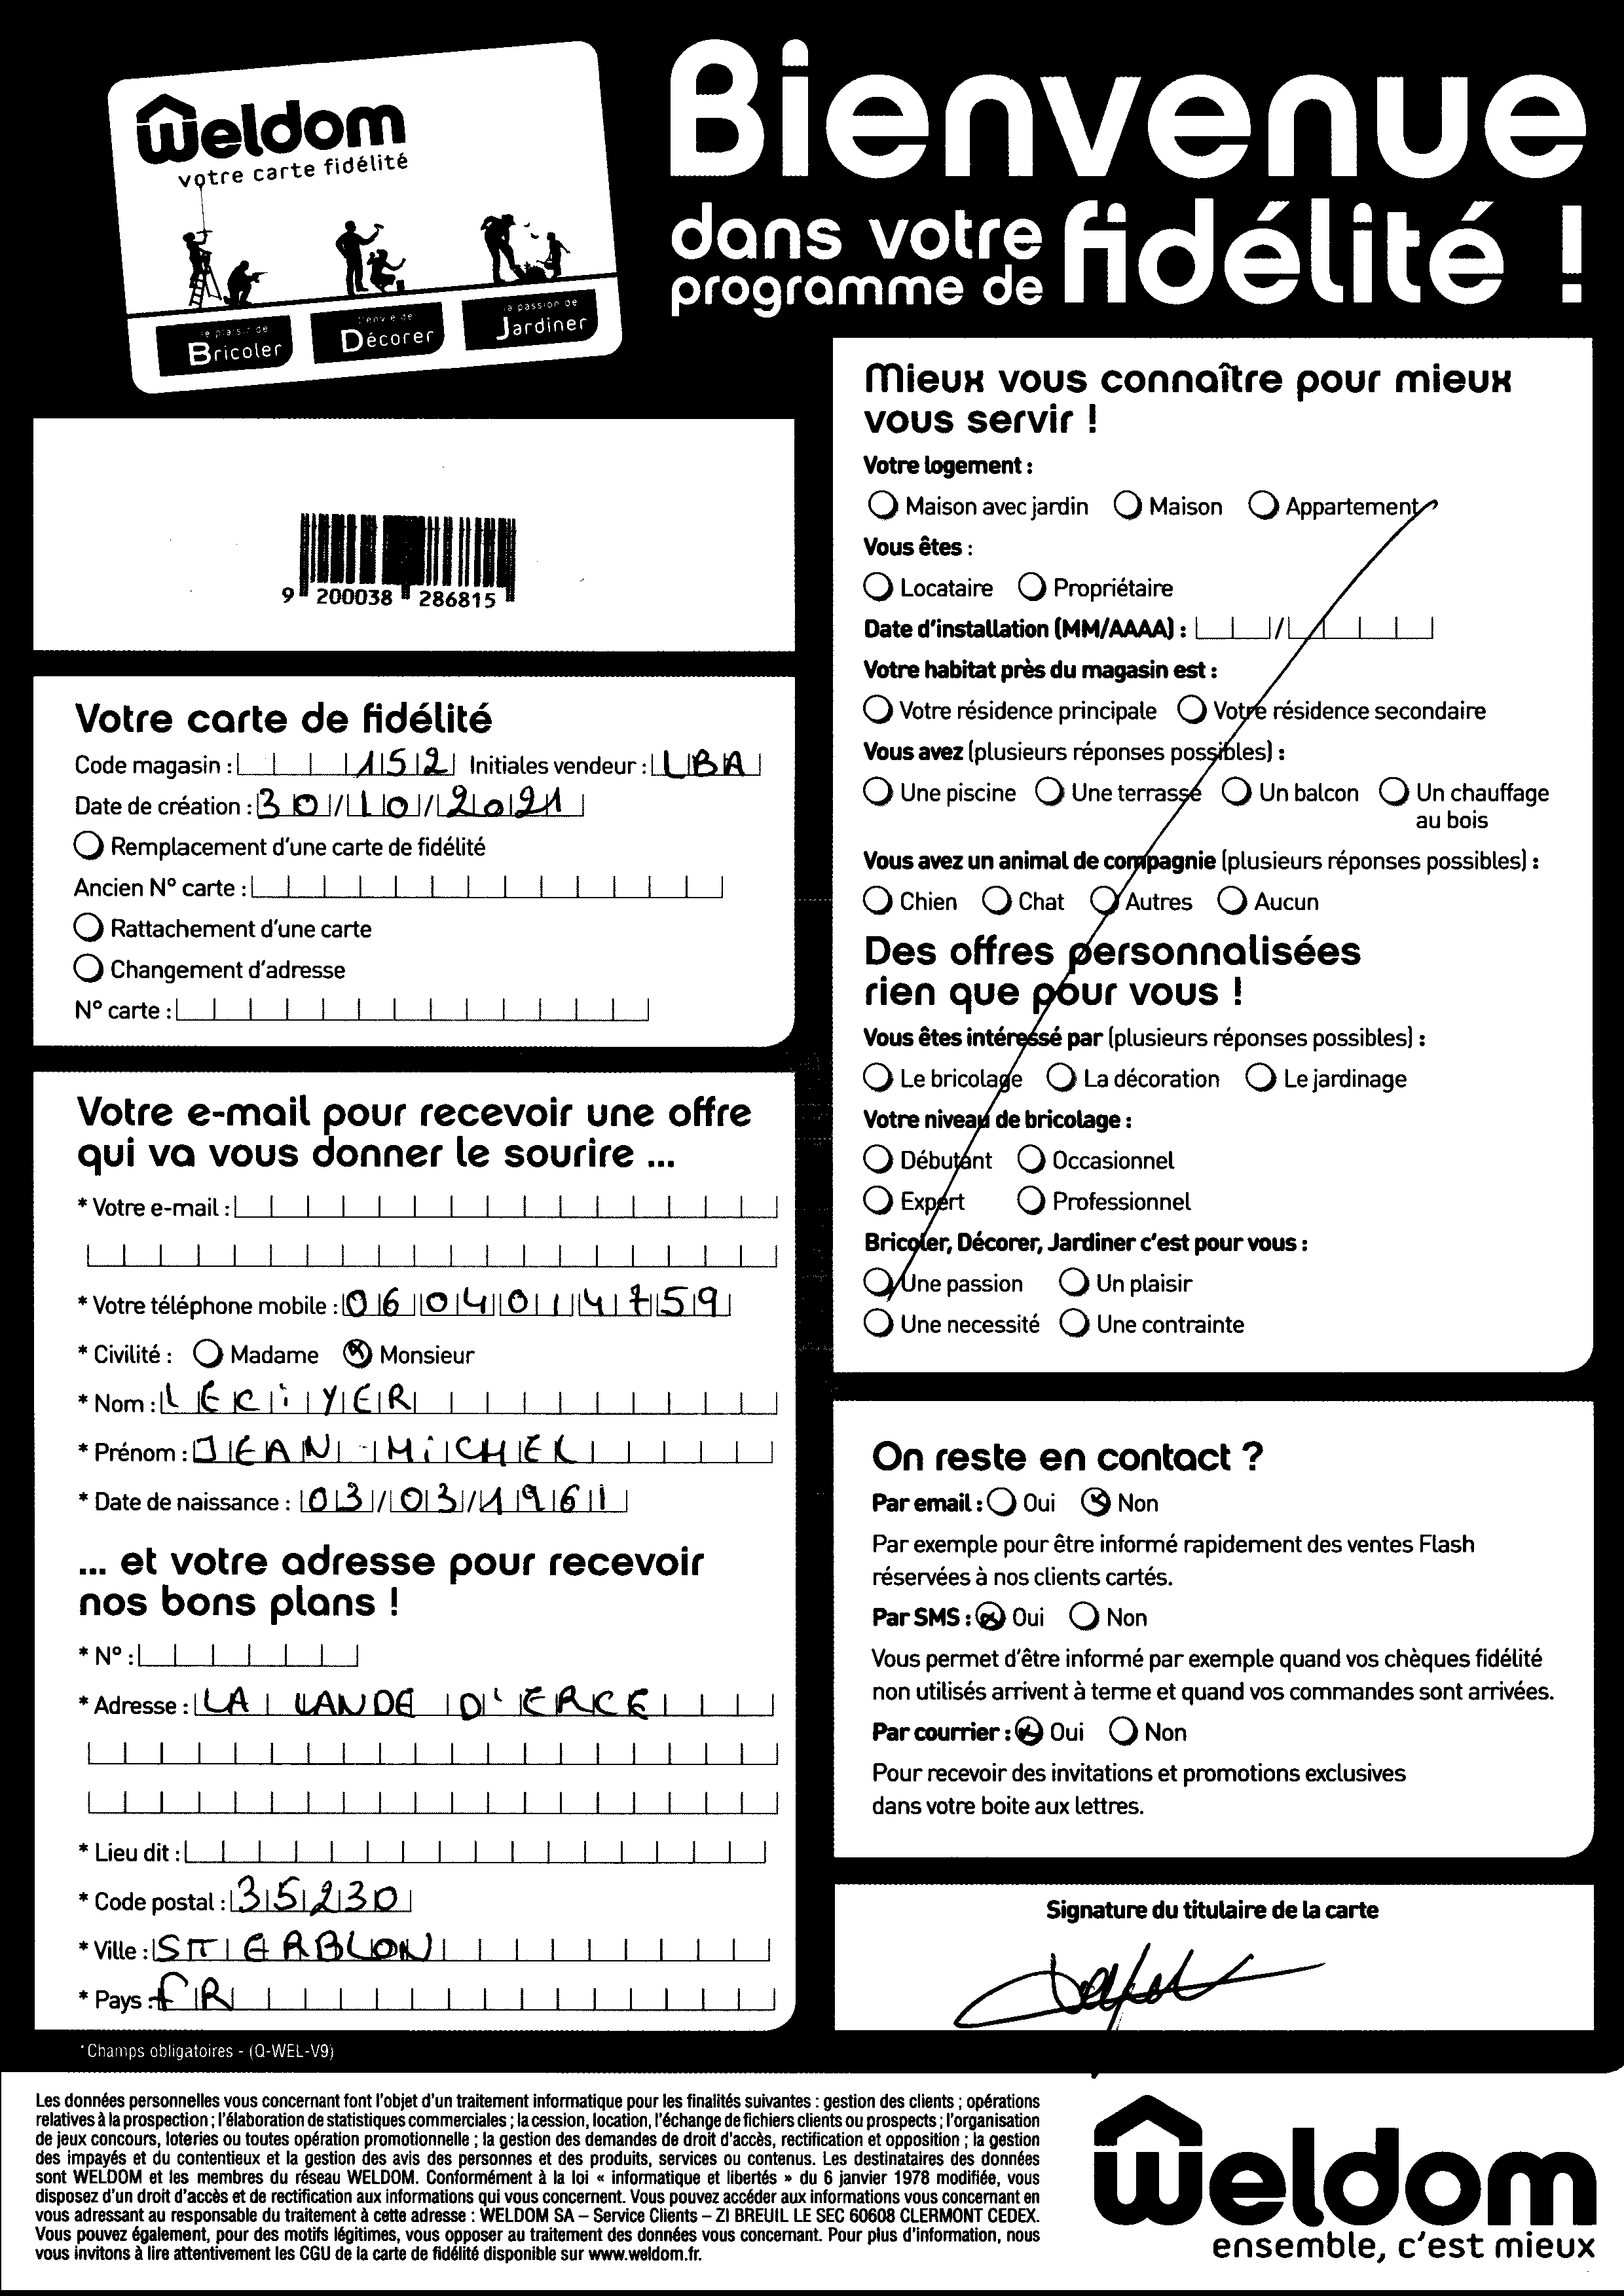 Weldom
votre carte fidélité
le plaisir de
Bricoler
l'envie de
Décorer
la passion de
Jardiner
Bienvenue
dans votre
programme de fidélité !
9 200038 286815
Votre carte de fidélité
Code magasin : 152 Initiales vendeur : LBA
Date de création : 30/10/2021
Remplacement d'une carte de fidélité
Ancien N° carte :
Rattachement d'une carte
Changement d'adresse
N° carte :
Votre e-mail pour recevoir une offre
qui va vous donner le sourire ...
* Votre e-mail :
* Votre téléphone mobile : 06 04 01 47 59
* Civilité : Madame Monsieur
* Nom : LECIYER
* Prénom : JEAN-MICHEL
* Date de naissance : 03/03/1961
... et votre adresse pour recevoir
nos bons plans !
* N° :
* Adresse : LA LANDE D'ERCE
* Lieu dit :
* Code postal : 35230
* Ville : ST ERBLON
* Pays : FR
*Champs obligatoires - (Q-WEL-V9)
Mieux vous connaître pour mieux
vous servir !
Votre logement :
Maison avec jardin Maison Appartement
Vous êtes :
Locataire Propriétaire
Date d'installation (MM/AAAA) : /
Votre habitat près du magasin est :
Votre résidence principale Votre résidence secondaire
Vous avez (plusieurs réponses possibles) :
Une piscine Une terrasse Un balcon Un chauffage
au bois
Vous avez un animal de compagnie (plusieurs réponses possibles) :
Chien Chat Autres Aucun
Des offres personnalisées
rien que pour vous !
Vous êtes intéressé par (plusieurs réponses possibles) :
Le bricolage La décoration Le jardinage
Votre niveau de bricolage :
Débutant Occasionnel
Expert Professionnel
Bricoler, Décorer, Jardiner c'est pour vous :
Une passion Un plaisir
Une necessité Une contrainte
On reste en contact ?
Par email : Oui Non
Par exemple pour être informé rapidement des ventes Flash
réservées à nos clients cartés.
Par SMS : Oui Non
Vous permet d'être informé par exemple quand vos chèques fidélité
non utilisés arrivent à terme et quand vos commandes sont arrivées.
Par courrier : Oui Non
Pour recevoir des invitations et promotions exclusives
dans votre boite aux lettres.
Signature du titulaire de la carte
Les données personnelles vous concernant font l'objet d'un traitement informatique pour les finalités suivantes : gestion des clients ; opérations
relatives à la prospection ; l'élaboration de statistiques commerciales ; la cession, location, l'échange de fichiers clients ou prospects ; l'organisation
de jeux concours, loteries ou toutes opération promotionnelle ; la gestion des demandes de droit d'accès, rectification et opposition ; la gestion
des impayés et du contentieux et la gestion des avis des personnes et des produits, services ou contenus. Les destinataires des données
sont WELDOM et les membres du réseau WELDOM. Conformément à la loi « informatique et libertés » du 6 janvier 1978 modifiée, vous
disposez d'un droit d'accès et de rectification aux informations qui vous concernent. Vous pouvez accéder aux informations vous concernant en
vous adressant au responsable du traitement à cette adresse : WELDOM SA – Service Clients – ZI BREUIL LE SEC 60608 CLERMONT CEDEX.
Vous pouvez également, pour des motifs légitimes, vous opposer au traitement des données vous concernant. Pour plus d'information, nous
vous invitons à lire attentivement les CGU de la carte de fidélité disponible sur www.weldom.fr.
Weldom
ensemble, c'est mieux